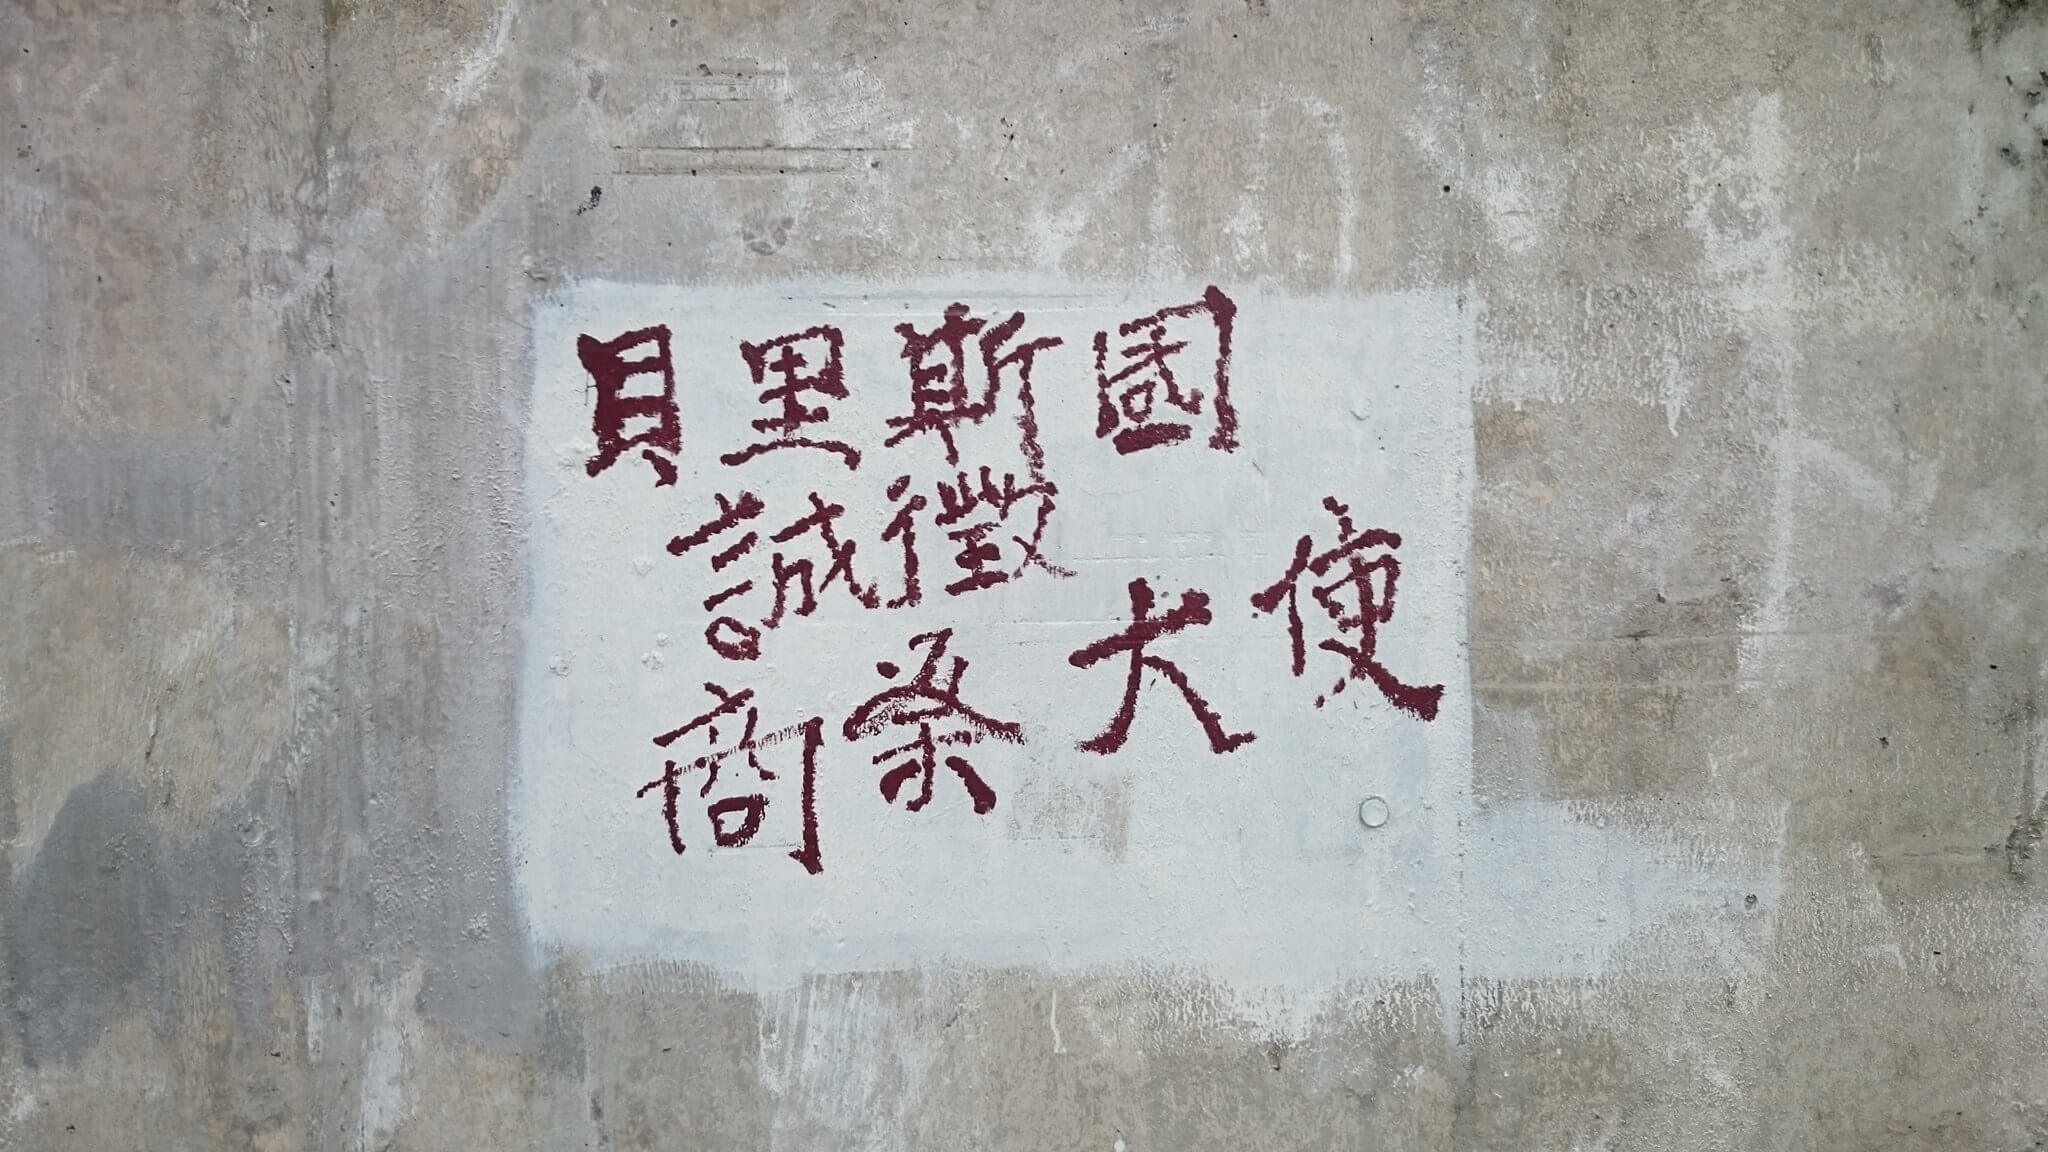 貝里斯國
誠徵
商条
大便